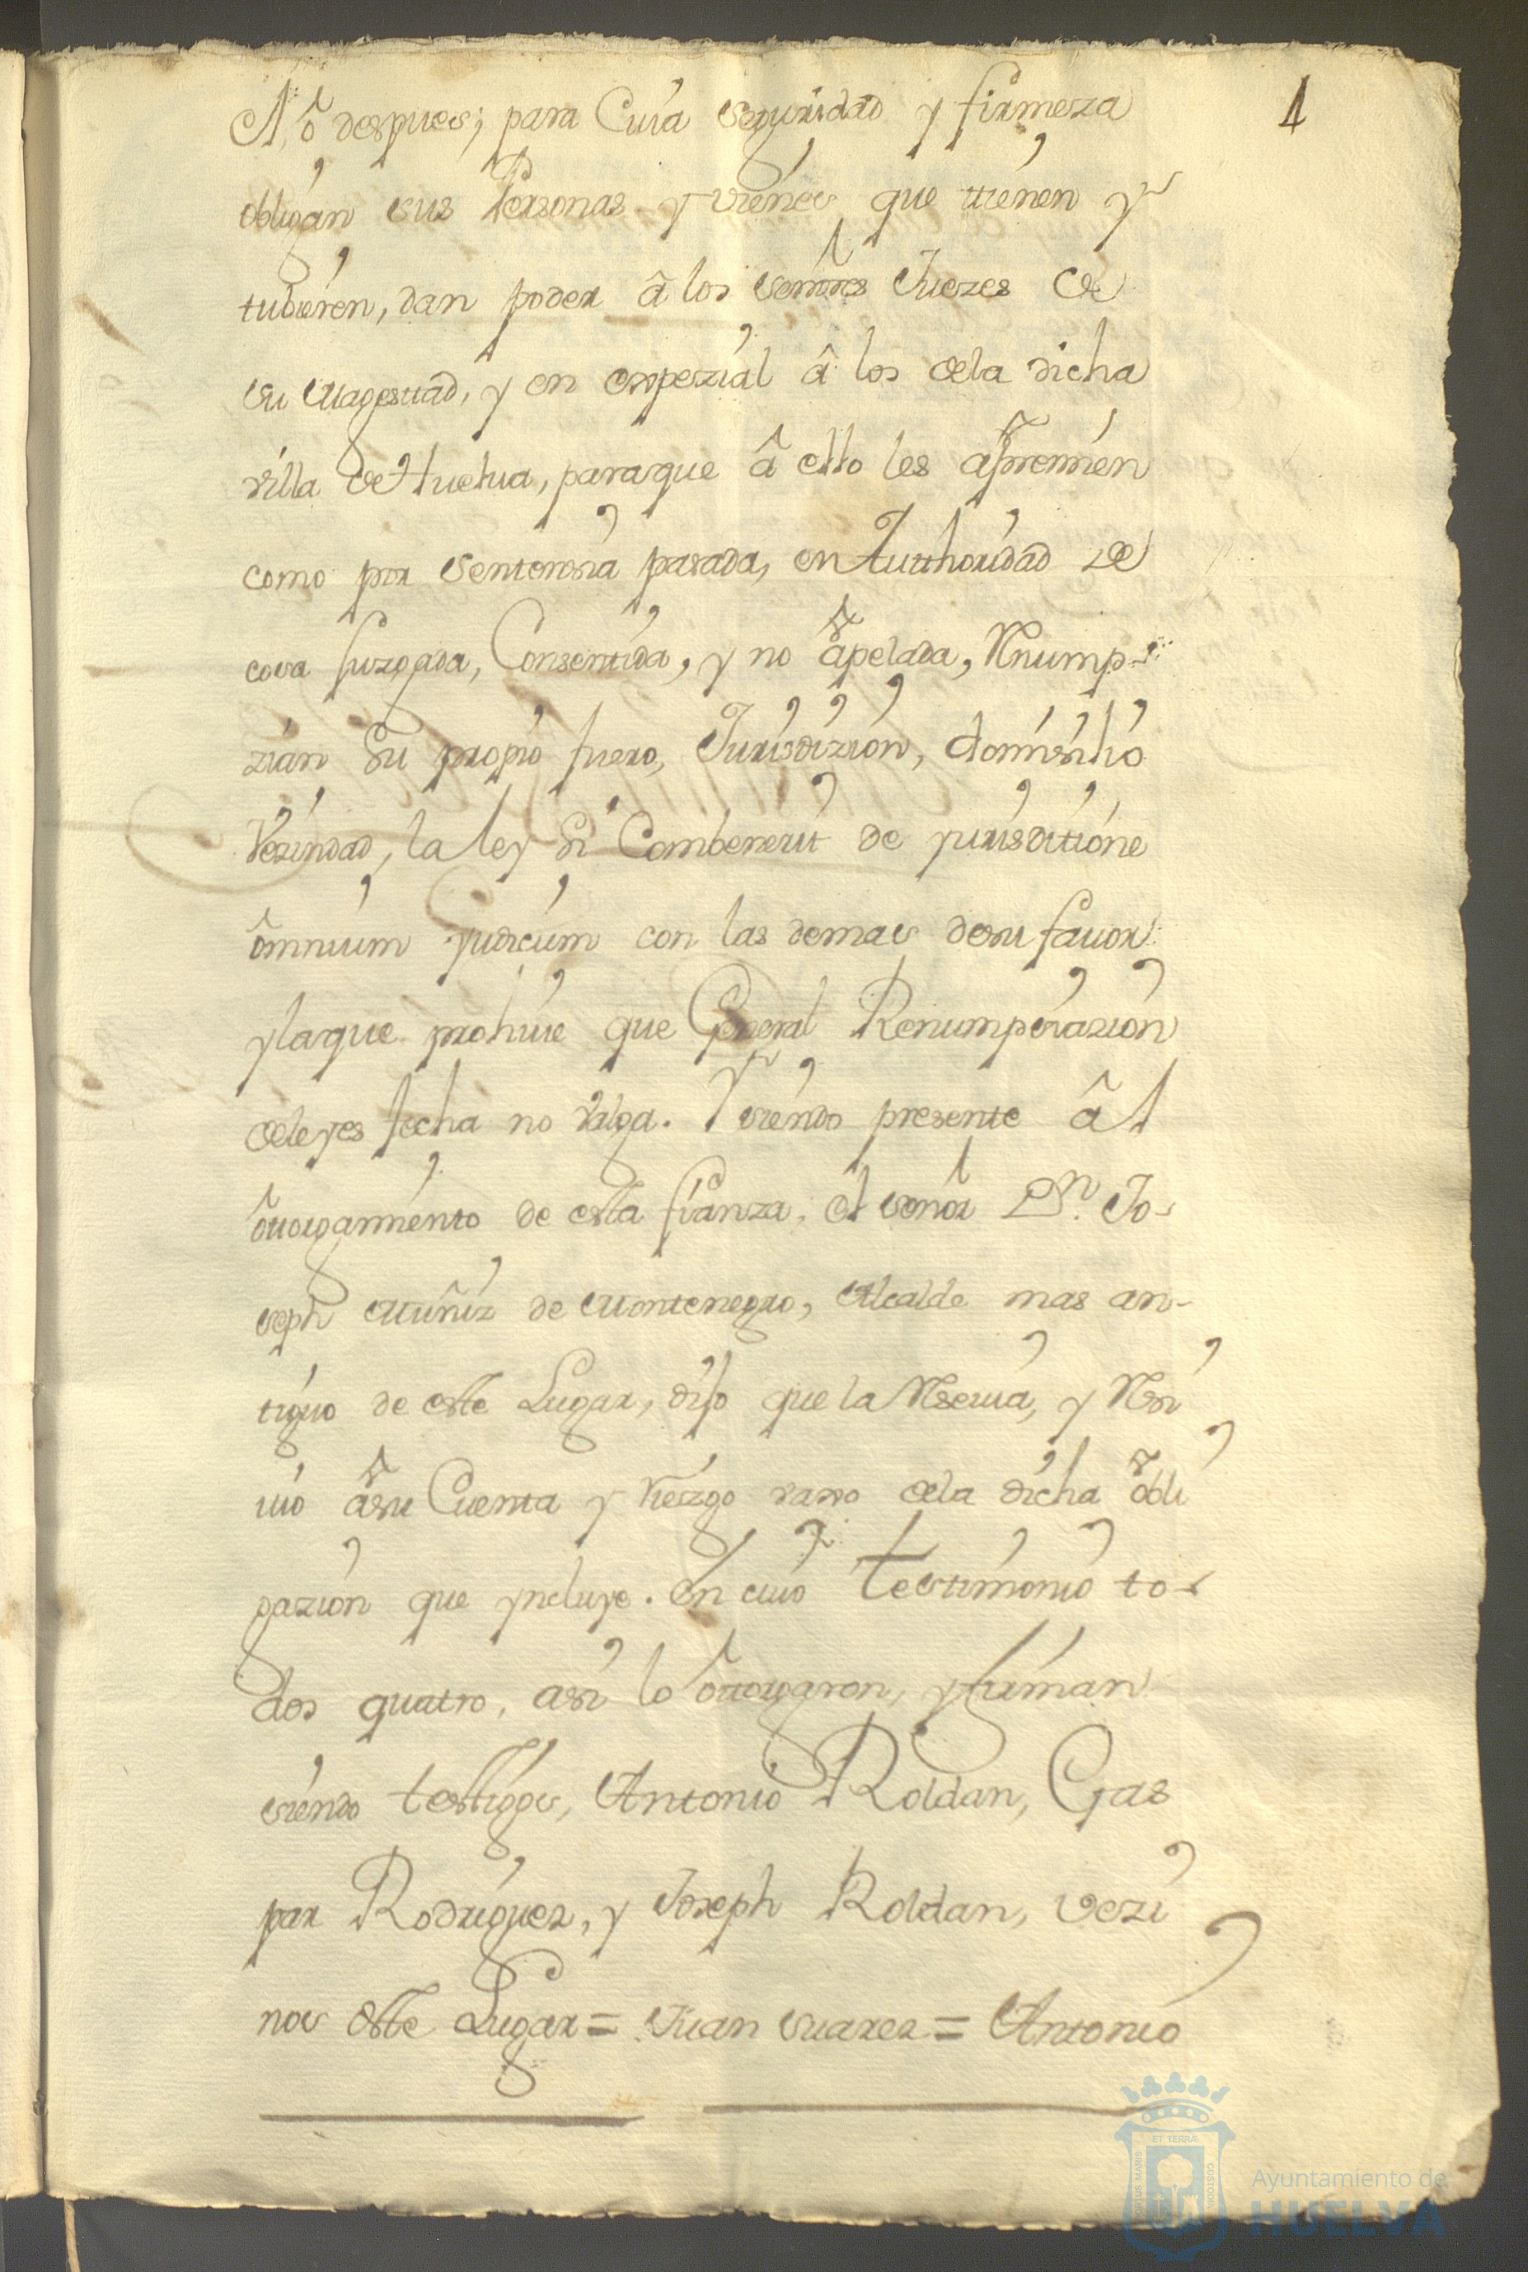 1
Al, ô despues; para Cuia seguridad y firmeza
obligan sus Personas y vienes que tienen y
tubieren, dan poder â los señores Juezes de
su Magestad, y en espezial â los dela dicha
villa de Huelua, paraque â ello les apremien
como por sentensia pasada, en Authoridad de
cosa juzgada, Consentida, y no âpelada, Rnump-
zian Su propio fuero, Jurisdizion, domisilio
Vezindad, la ley Si Combenerit de yurisditione
ômnium yudicum con las demas desu fauor
ylaque prohiue que General Renumpsiazion
deleyes fecha no valga. Y siendo presente âl
ôtorgamiento de esta fianza, el señor Dn. Jo-
seph Muñiz de Montenegro, Alcalde mas an-
tiguo de este Lugar, dijo que la Rseuia, y Rsi
uio âsu Cuenta y Riezgo vaxo dela dicha ôbli
gazion que yncluye. En cuio testimonio to-
dos quatro, asi lo ôtorgaron, yfirman
siendo testigos, Antonio Roldan, Gas
par Rodriguez, y Joseph Roldan, vezi
nos deste Lugar = Juan Suarez = Antonio
ET TERRÆ
PORTUS MARIS
CUSTODIA
Ayuntamiento de
HUELVA